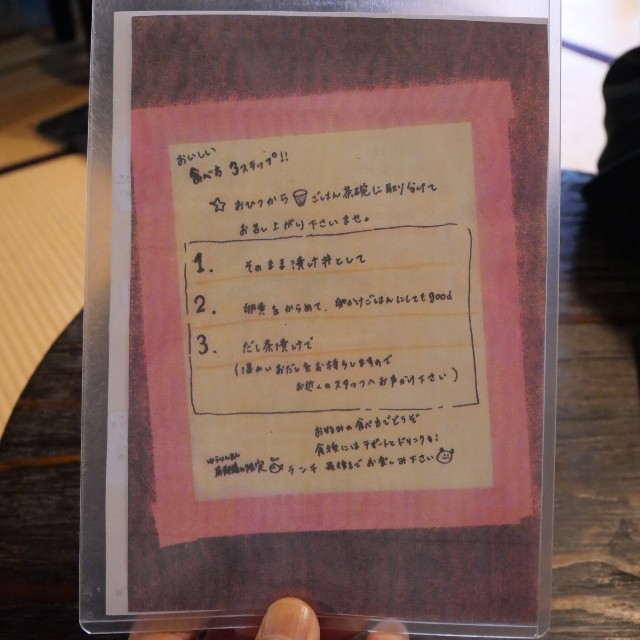 おいしい
食べ方 3ステップ!!
☆ おひつから ごはん茶碗に取り分けて
お召し上がり下さいませ。
1. そのまま漬け丼として
2. 卵黄をからめて、卵かけごはんにしてもgood
3. だし茶漬けで
(温かいおだしをお持ちしますので
お近くのスタッフへお声がけ下さい)
お好みの食べ方でどうぞ
食後にはデザートとドリンクも!
ランチ 最後までお楽しみ下さい